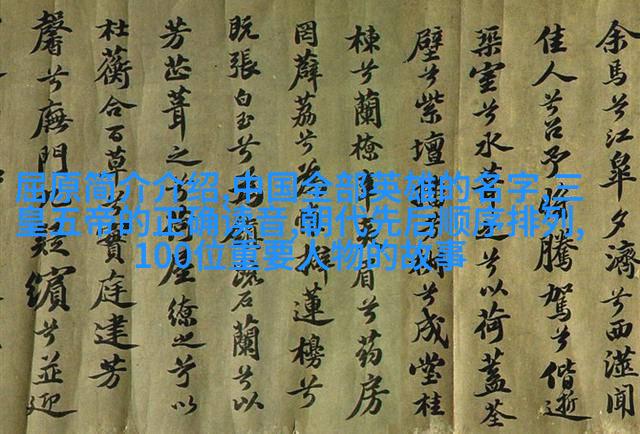 屈原简介介绍,中国全部英雄的名字,三
皇五帝的正确读音,朝代先后顺序排列,
100位重要人物的故事
余馬兮江皋夕濟兮西澨聞
佳人兮召予騰駕兮偕逝
築室兮水兮以荷蓋荃
壁兮紫壇兮成堂桂
棟兮蘭橑眉兮葯房
罔薜荔兮蓮櫋兮
既張白玉兮石蘭兮以
芳芷葺之屋繚之兮以
杜蘅合百草實庭建芳
馨兮廡門繽兮並迎